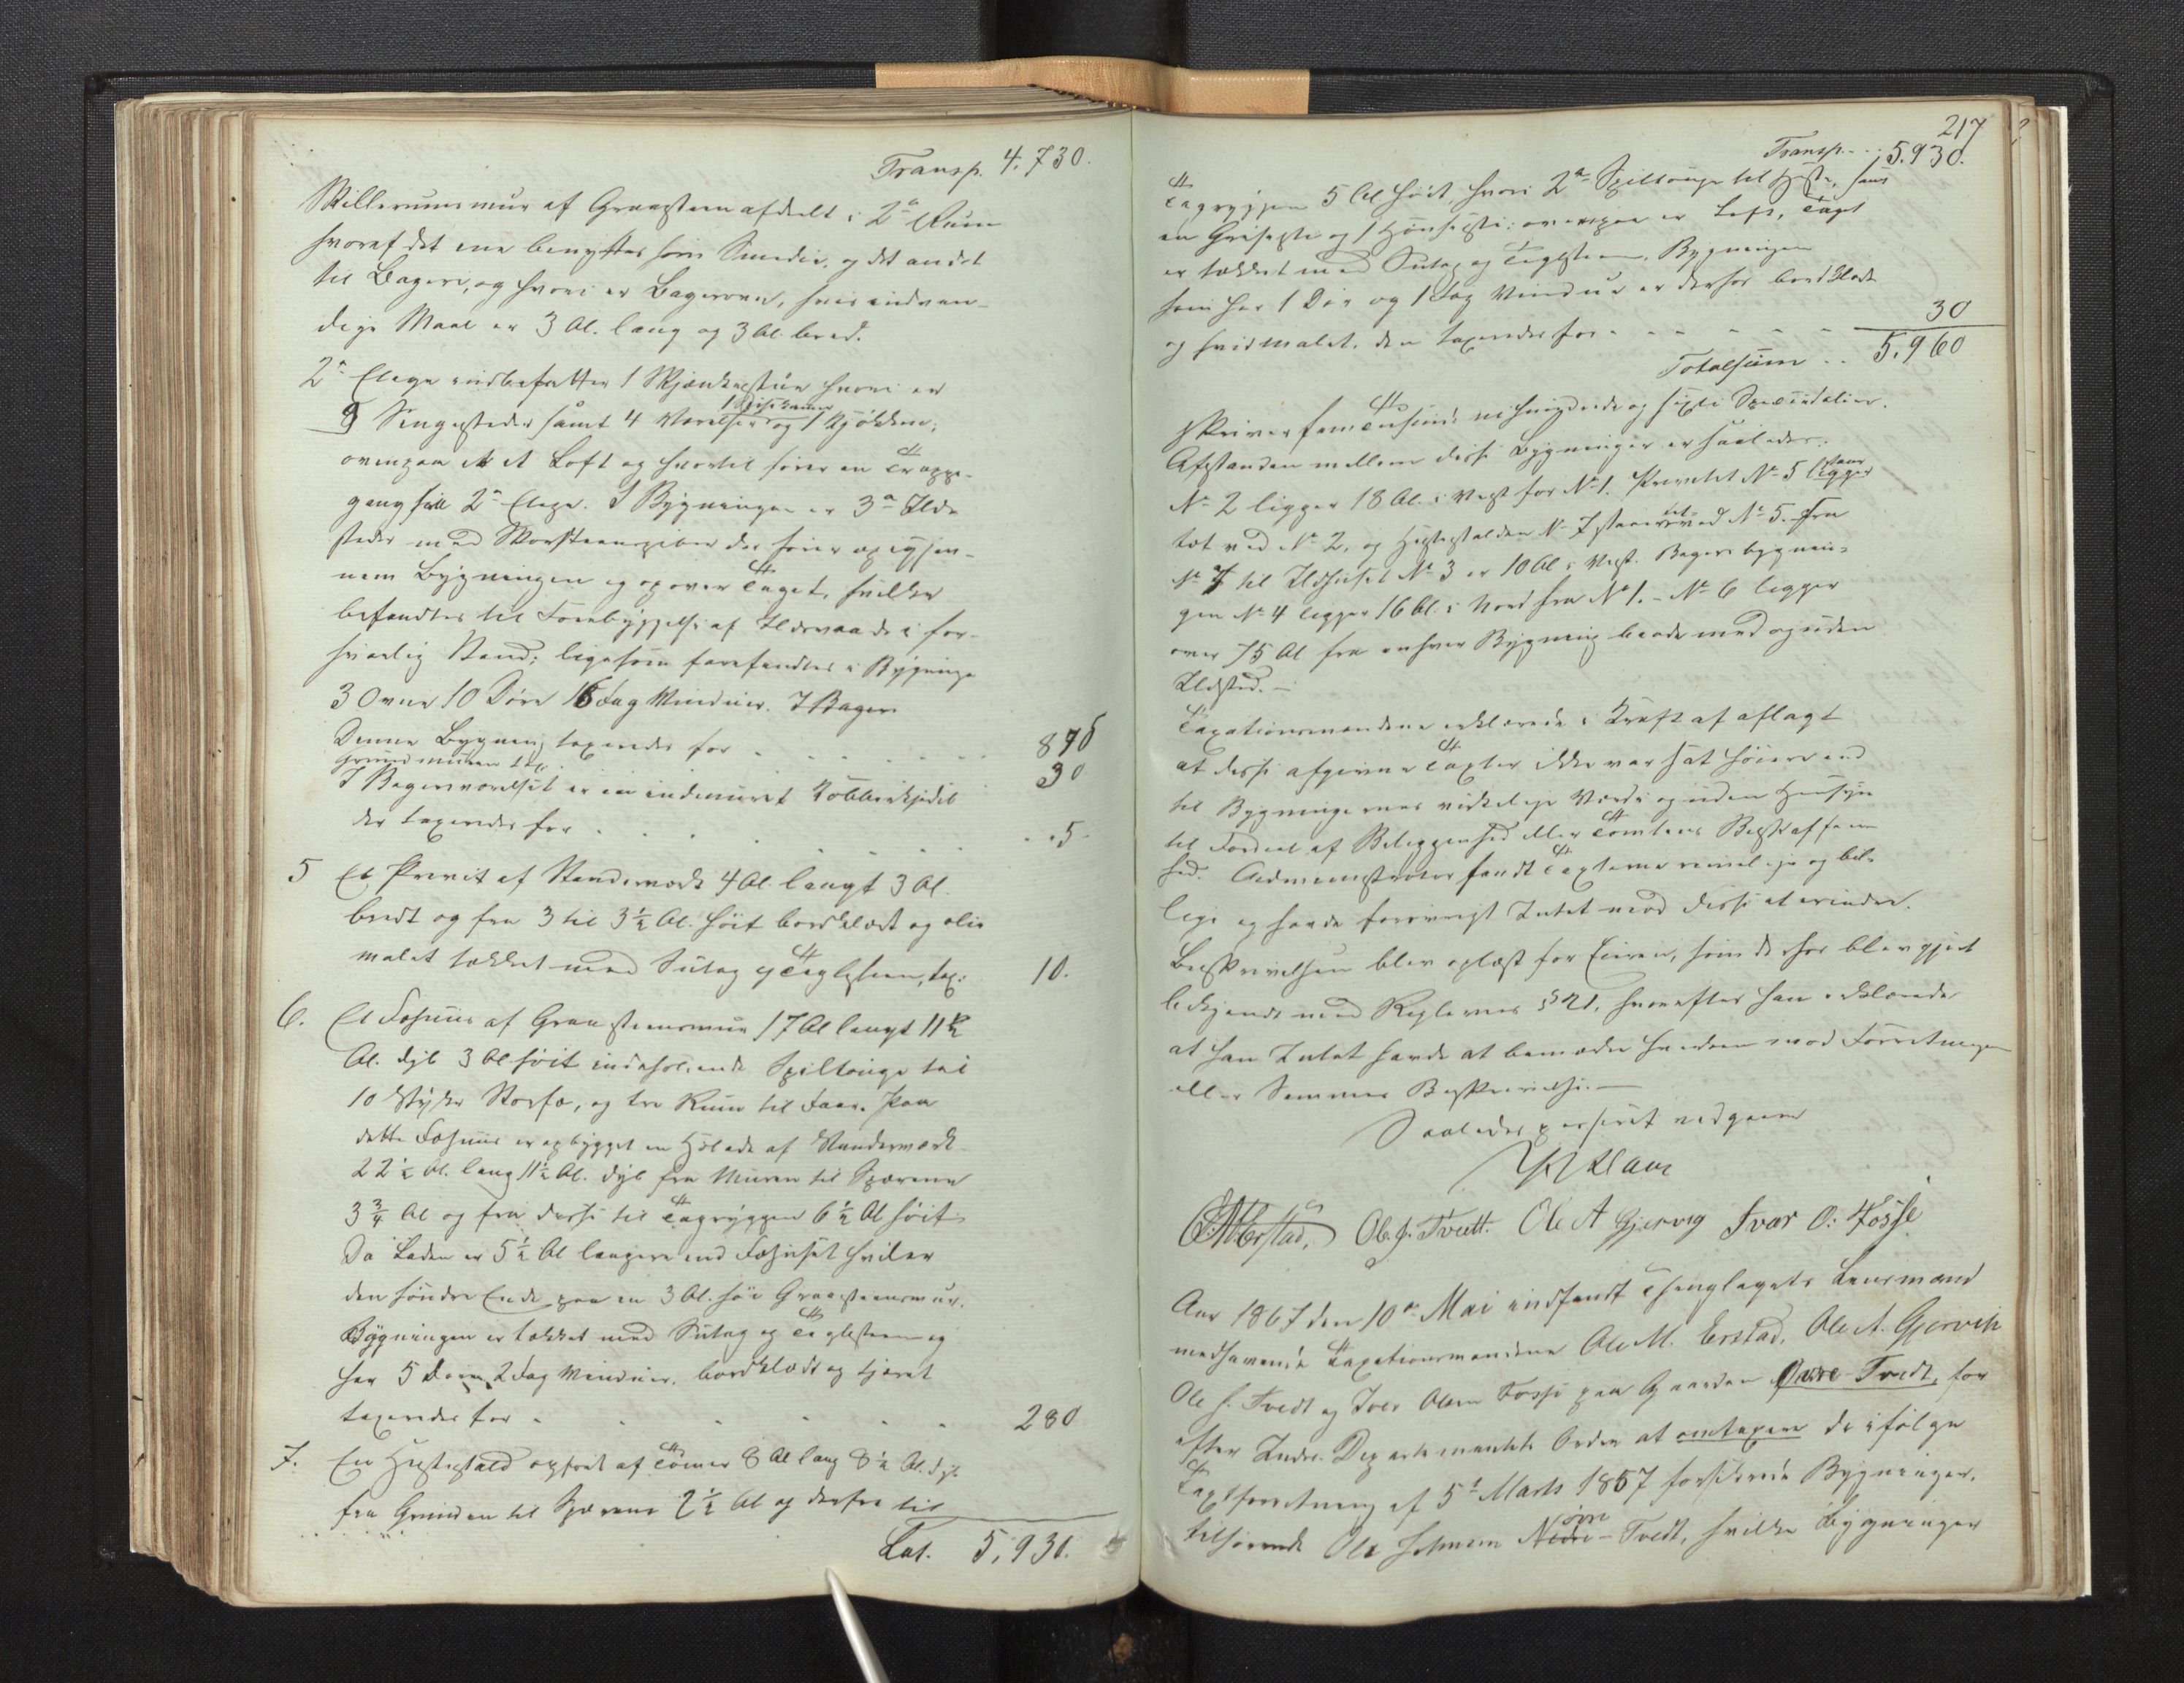 Transp. 4.730.
Skillerumsmuur af Graasteen afdeelt i 2de Rum
hvoraf det ene benyttes som Smedie, og det andet
til Bageri, og hvori er Bagerovn, hvis indven-
dige Maal er 3 Al. lang og 3 Al. bred.
2den Etage indbefatter 1 Skjænkestue hvori er
9 Sengesteder samt 4 Værelser og 1 Kjøkken;
1 Spisekamer
ovenpaa er et Loft og hvortil fører en Trappe-
gang fra 2den Etage. I Bygningen er 3de Ilde-
steder med Skorsteenspiber der fører op igjen-
nem Bygningen og op over Taget, hvilke
befandtes til Forebyggelse af Ildsvaade i for-
svarlig Stand; ligesom forefandtes i Bygningen
3 Ovne 10 Døre 16 Fag Vinduer. I Bageri
Denne Bygning taxeredes for . . . . . . 875
Grundmuren tax. 30
I Bagerværelset er en indmuret Kobberkjedel
der taxeredes for . . . . . . 5
5 Et Privet af Standværk 4 Al. langt 3 Al.
bredt og fra 3 til 3½ Al. høit bordklædt og olie
malet tækket med Sutag og Taglsteen, tax: 10.
6. Et Fæhuus af Graasteensmuur 17 Al langt 11½
Al. dyb 3 Al høit indeholdende Spiltouge til
10 Stykr Storfæ, og tre Rum til Faar. Paa
dette Fæhuus er opbygget en Høelade af Standværk
22½ Al. lang 11½ Al. dyb fra Muren til Sperrene
3¾ Al og fra disse til Tagryggen 6½ Al høit
Da Laden er 5½ Al længere end Fæhuset hviler
den søndre Ende paa en 3 Al. høi Graasteensmuur.
Bygningen er tækket med Sutag og Taglsteen og
har 5 Døre, 2 Fag Vinduer, bordklædt og tjæret
taxeredes for . . . . . . 280
7. En Hestestald opført af Tømer 8 Al lang 8½ Al. dyb
fra Grunden til Sperrene 2½ Al og derfra til
Lat. 5,930.
217
Transp. . . . 5.930.
Tagryggen 5 Al høit, hvori 2de Spiltouge til Heste, samt
en Grisesti og 1 Hønsesti; ovenpaa er Loft, Taget
er tækket med Sutag og Taglsteen. Bygningen
som har 1 Dør og 1 Fag Vindue er derhos bordklædt
og hvidmalet. Den taxeredes for . . . . . . 30
Totalsum . . 5.960
skriver femtusinde nihundrede og sexti Speciedaler.
Afstanden mellem disse Bygninger er saaledes:
No 2 ligger 18 Al. i Vest for No 1. Privetet No 5 ligger
staar
tæt ved No 2, og Hestestalden No 7 staar ved No 5. Fra
tæt
No 7 til Ildhuset No 3 er 10 Al i Vest. Bageribygnin-
gen No 4 ligger 16 Al. i Nord fra No 1. – No 6 ligger
over 75 Al fra enhver Bygning baade med og uden
Ildsted. –
Taxationsmændene erklærede i Kraft af aflagt
at disse afgivne Taxter ikke var sat høiere end
til Bygningernes virkelige Værdi og uden Hensyn
til Fordeel af Beliggenhed eller Tomtens Beskaffen-
hed. Administrator fandt Taxterne rimelige og bil-
lige og havde forøvrigt Intet mod disse at erindre.
Beskrivelsen blev oplæst for Eieren, som derhos blev gjort
bekjendt med Reglernes § 21, hvorefter han erklærede
at han Intet havde at bemærke hverken mod Forretningen
eller Sammes Beskrivelse. –
Saaledes passeret vedgaaes
OMErstad. Ole J. Tvedt. Ole A Gjervig Ivar O: Fosse
Aar 1867 den 10de Mai indfandt Thinglagets Lensmand
medhavende Taxationsmændene Ole M. Erstad, Ole A. Gjervik
Ole J. Tvedt og Iver Olsen Fosse paa Gaarden Øvre-Tvedt, for
efter Indre-Departementets Orden at omtaxere de ifølge
Taxtforretning af 5te Marts 1857 forsikrede Bygninger,
tilhørende Ole Johnsen Nedre-Tvedt, hvilke Bygninger
øvre